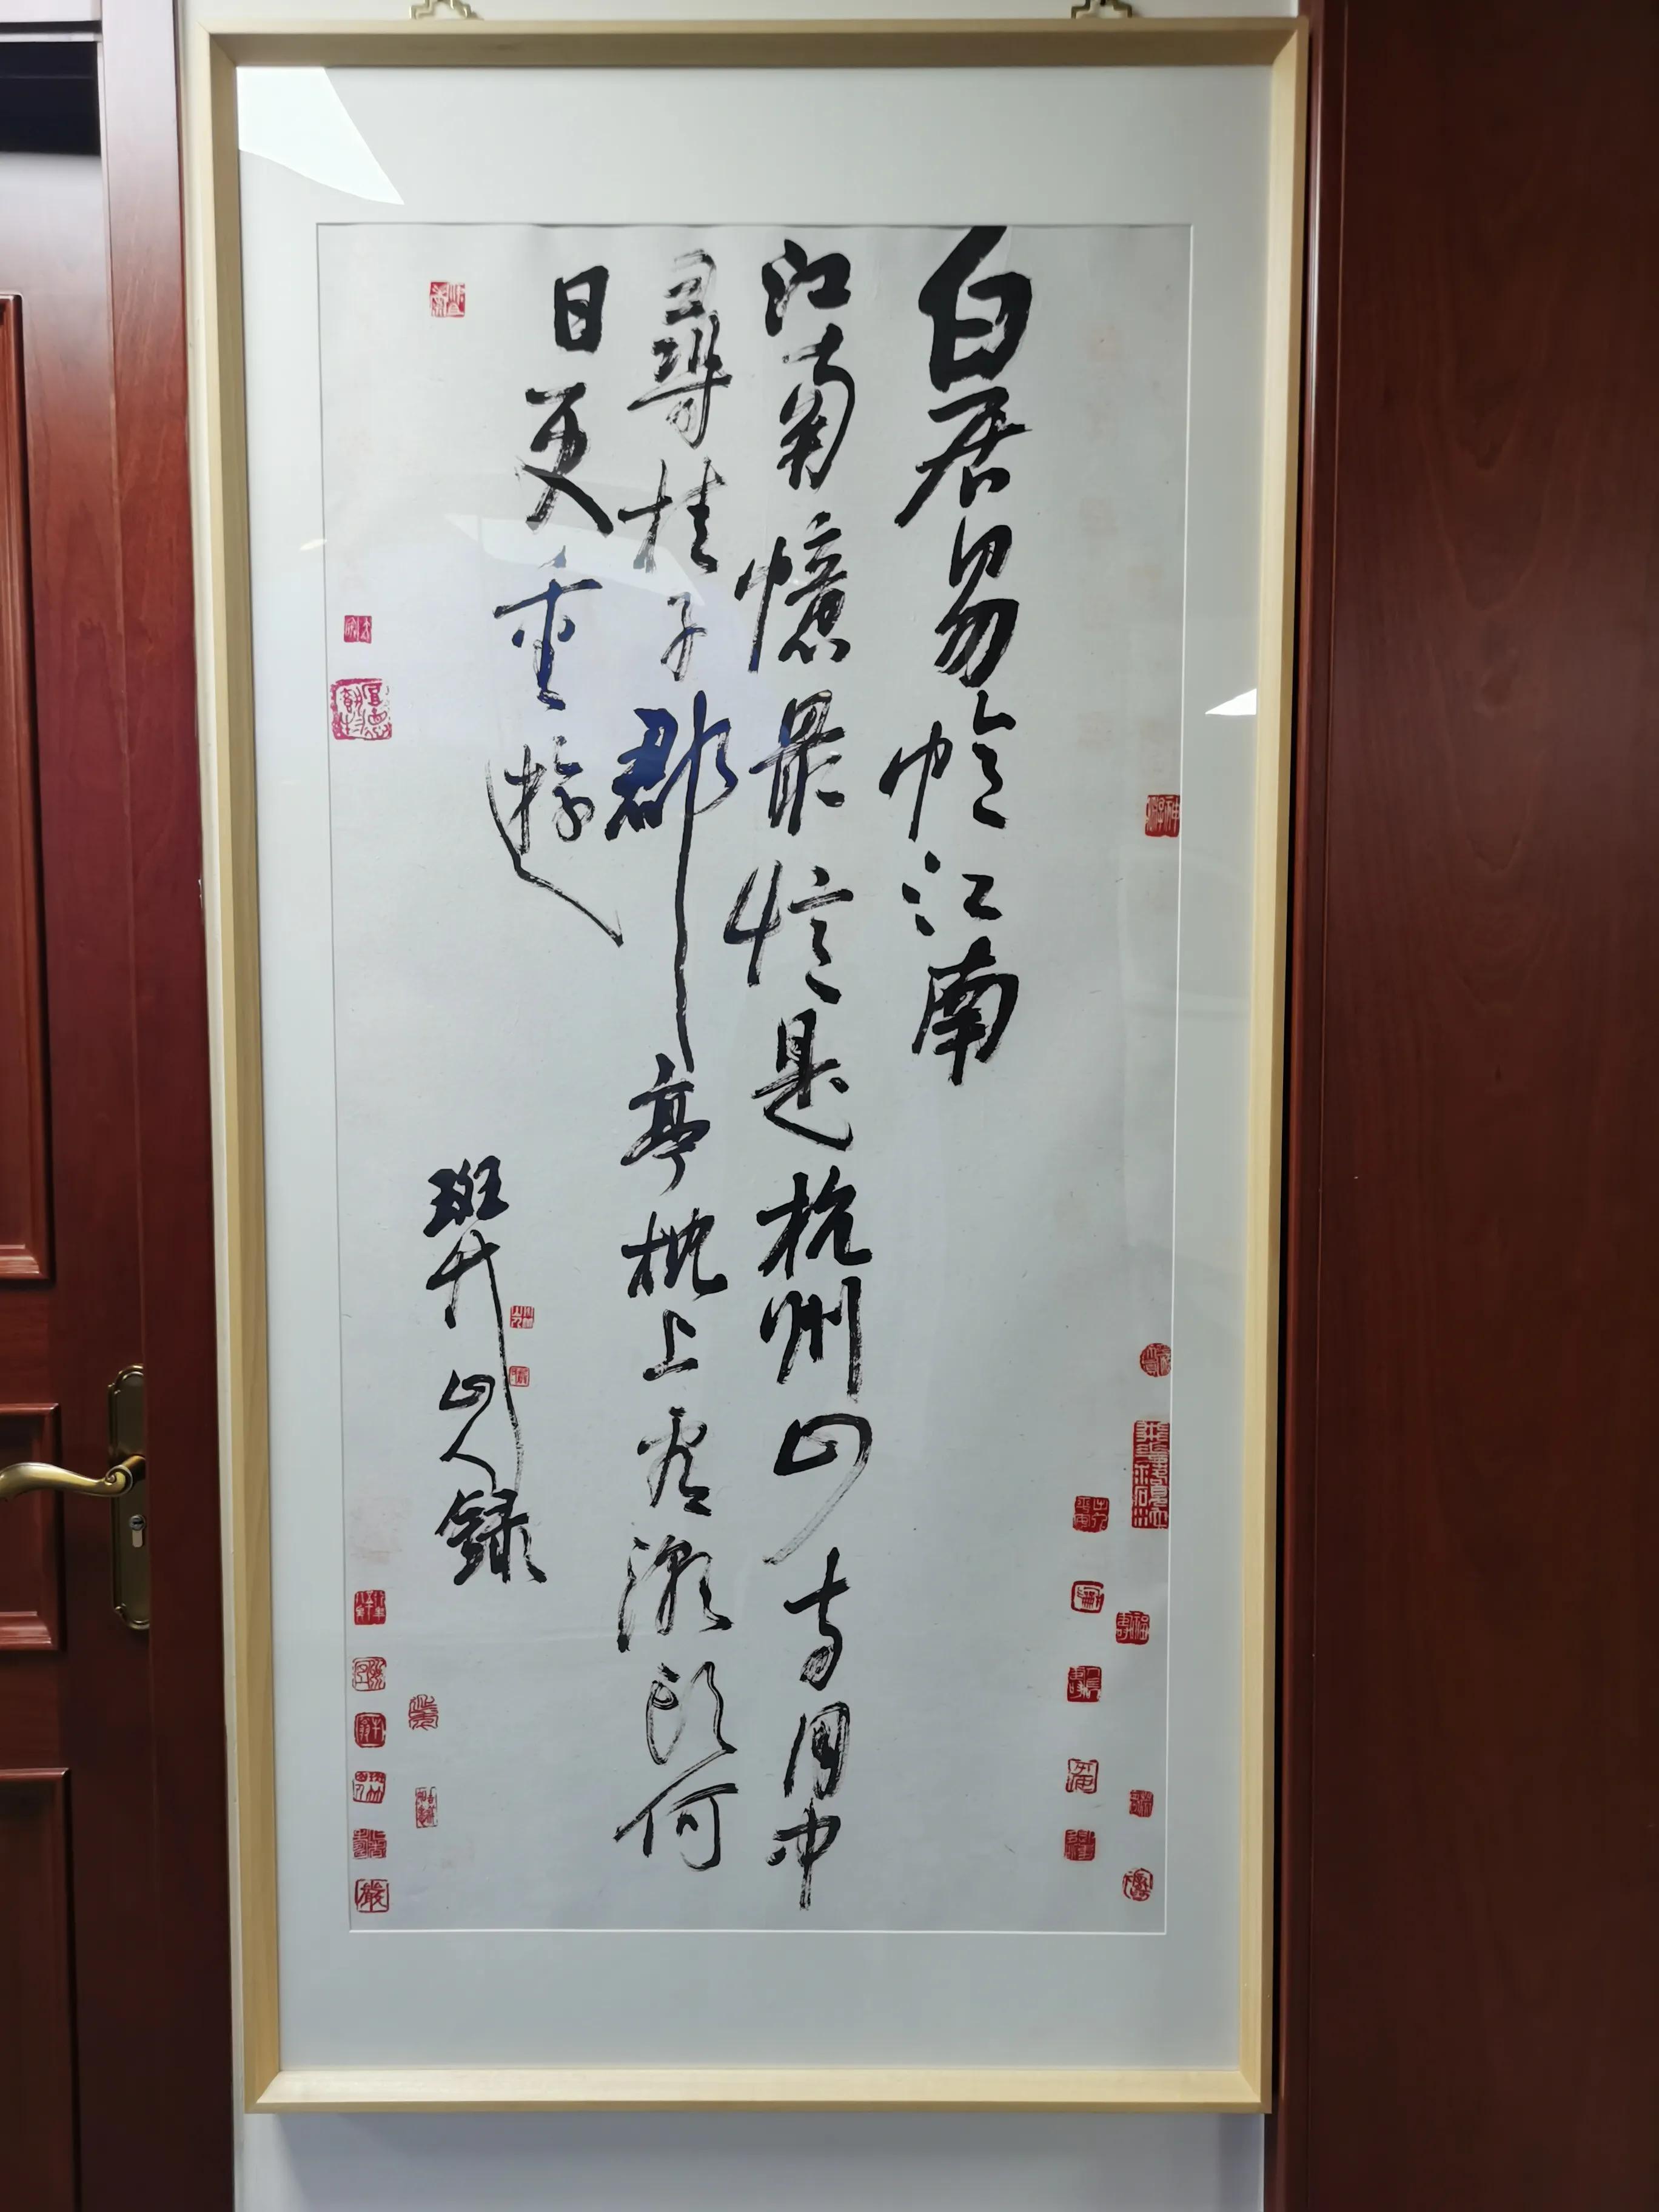 白居易憶江南
江南憶最憶是杭州山寺月中
尋桂子郡亭枕上看潮頭何
日更重遊
斑竹山人録